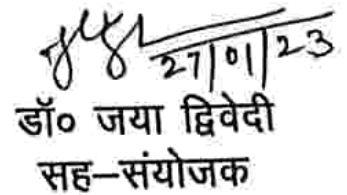 27/01/23
डॉ० जया द्विवेदी
सह-संयोजक